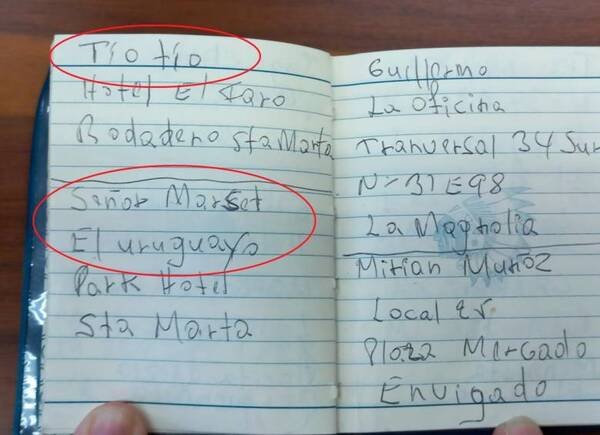 Tío tío
Hotel El Faro
Rodadero Sta Marta
Señor Marset
El uruguayo
Park Hotel
Sta Marta
Guillermo
La Oficina
Tranversal 34 Sur
N- 31 E 98
La Magnolia
Mirian Muñoz
Local
Plaza Mercado
Envigado